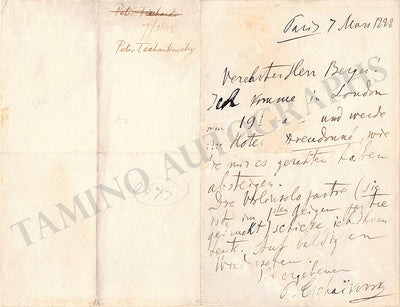 Peter Tschaik
7/3/88
Peter Tschaikowsky
Paris 7 März 1888
Verehrtester Herr Berger!
Ich komme in London
den 19/ an und werde
im Hotel Dieudonné, wie
Sie mir es geraten haben
absteigen.
Die Violinsolo partie (sie
ist im 1sten Geigen partie
gedruckt) schicke ich Ihnen
heute. Auf baldig en
Wiedersehen
Ihr ergebener
P. Tschaïkovsky
TAMINO AUTOGRAPHS